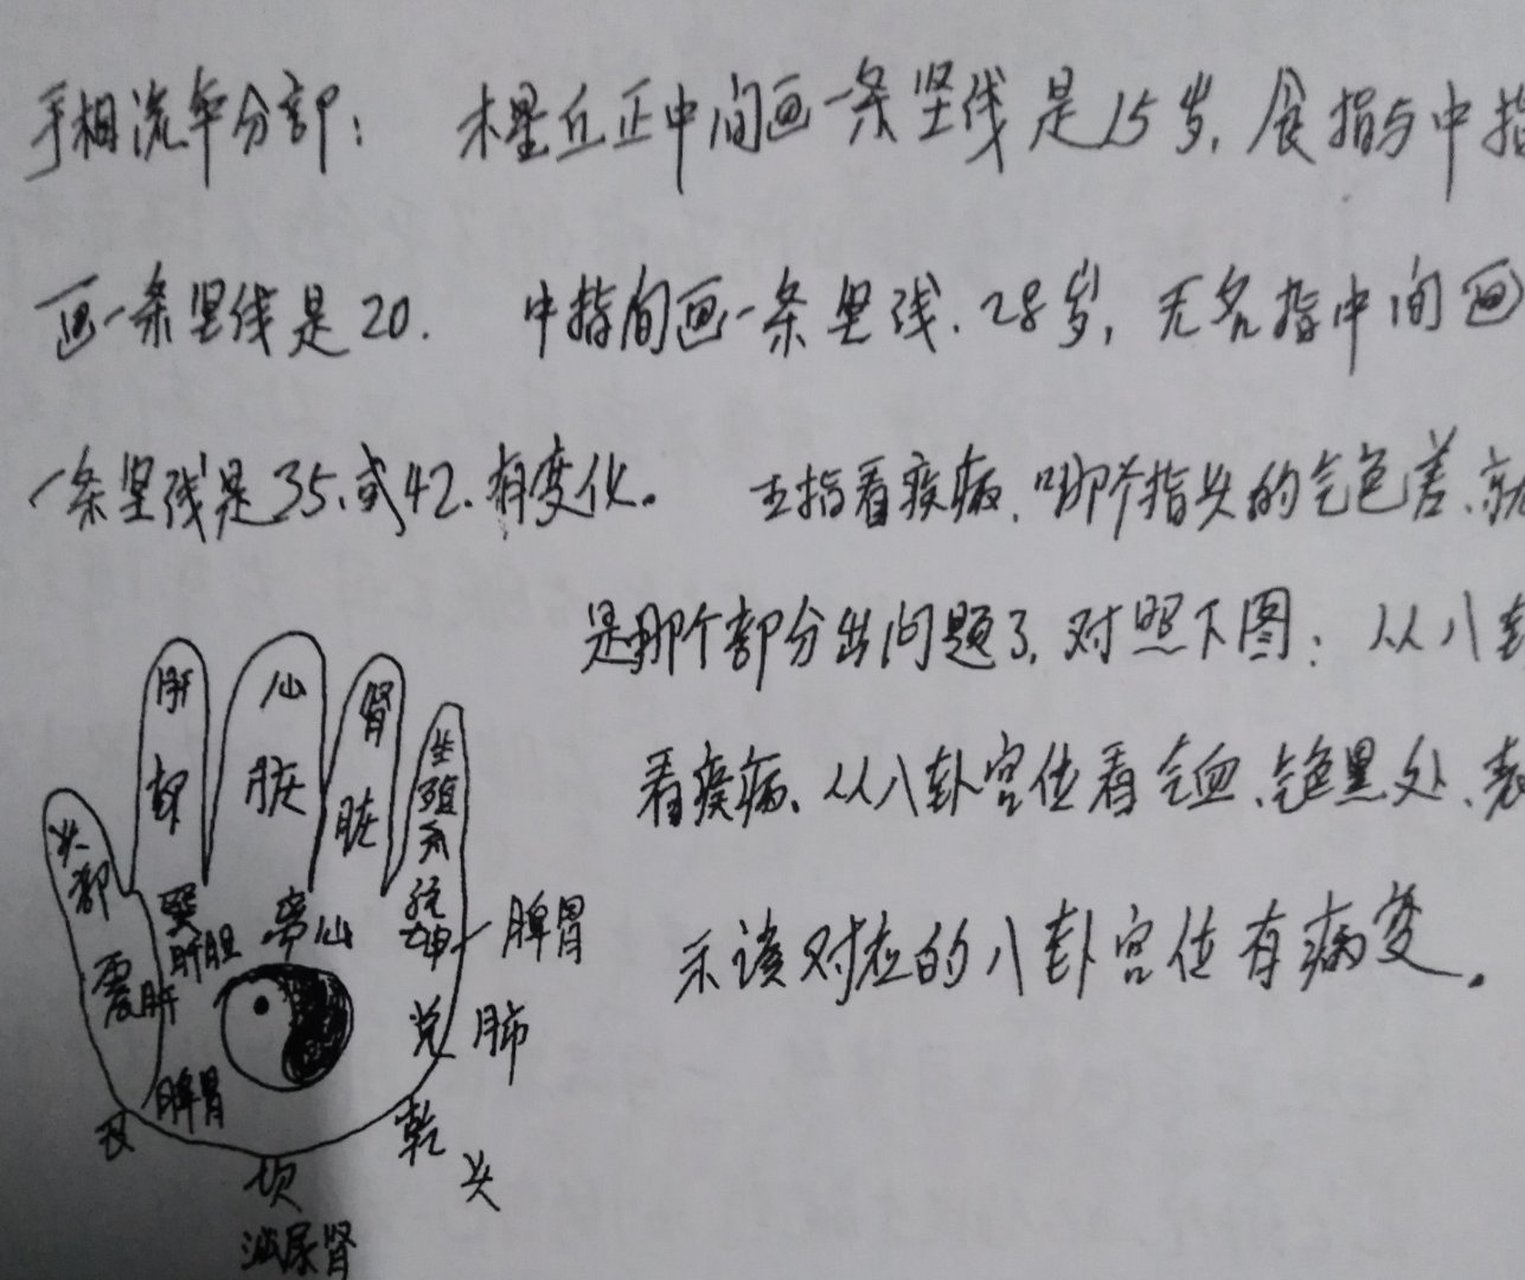 手相流年分部： 木星丘正中间画一条竖线是15岁，食指与中指
画一条竖线是20． 中指间画一条竖线．28岁，无名指中间画
一条竖线是35．或42．有变化。 五指看疾病．哪个指头的气色差．就
是那个部分出问题了．对照下图：从八卦
看疾病．从八卦宫位看气血．气色黑处．表
示该对应的八卦宫位有病变。
肝部
心脏
肾脏
生殖系统
头部
巽 肝胆
离 心
坤 脾胃
震 肝
兑 肺
艮 脾胃
乾 头
坎
泌尿肾